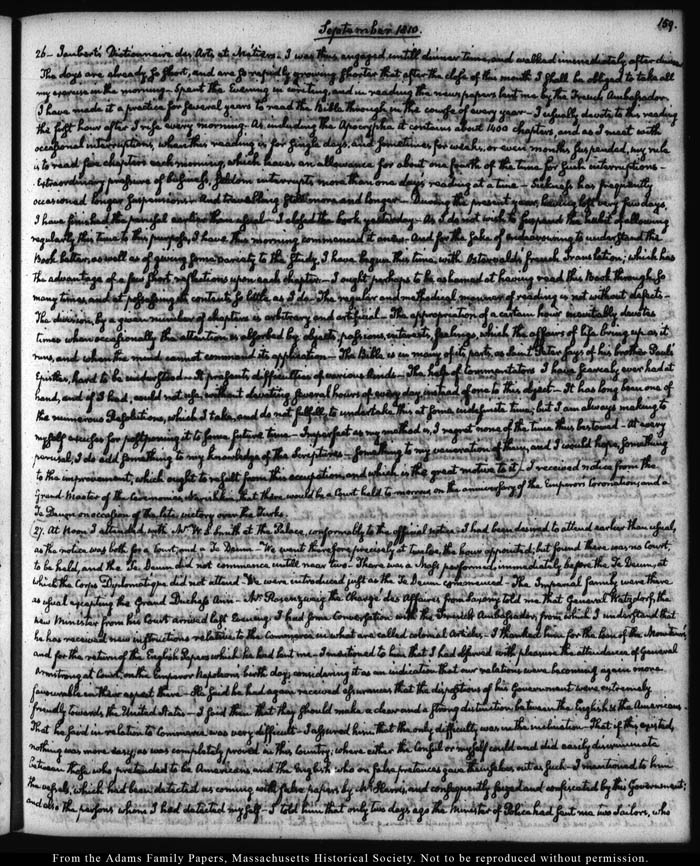 159.
September 1810.
26 — Jaubert's Dictionnaire des Arts et Métiers — I was thus engaged untill dinner time, and walked immediately after dinner
The days are already so short, and are so rapidly growing shorter that after the close of this month I shall be obliged to take all
my exercise in the morning — Spent the Evening in writing, and in reading the newspapers lent me by the French Ambassador.
I have made it a practice for several years to read the Bible through in the course of every year — I usually devote to this reading
the first hour after I rise every morning. As including the Apocrypha it contains about 1400 chapters, and as I meet with
occasional interruptions, when this reading is for single days, and sometimes for weeks, or even months suspended, my rule
is to read five chapters each morning, which leaves an allowance for about one fourth of the time for such interruptions —
Extraordinary pressure of business, seldom interrupts more than one days reading at a time — Sickness has frequently
occasioned longer suspensions — And travelling still more and longer — During the present year, having lost very few days,
I have finished the perusal earlier than usual — I closed the book yesterday — As I do not wish to suspend the habit of allowing
regularly this time to this purpose, I have this morning commenced it anew — And for the sake of endeavouring to understand the
Book better, as well as of giving some variety to the study, I have begun this time with Ostervald's French Translation; which has
the advantage of a few short reflections upon each chapter — I ought perhaps to be ashamed at having read this Book through so
many times, and at possessing its contents so little as I do — The regular and methodical manner of reading is not without defects —
The division, by a given number of chapters is arbitrary and artificial — The appropriation of a certain hour inevitably devotes
times when occasionally the attention is absorbed by objects, passions, interests, feelings, which the affairs of life bring up as it
runs, and when the mind cannot command its application — The Bible is in many of its parts, as Saint Peter says of his brother Paul's
Epistles, hard to be understood — It presents difficulties of various kinds — The help of Commentators I have scarcely ever had at
hand, and if I had, could not use without devoting several hours of every day instead of one to this object — It has long been one of
the numerous Resolutions, which I take, and do not fulfill, to undertake this at some indefinite time; but I am always making to
myself excuses for postponing it to some future time — Imperfect as my method is, I regret none of the time thus bestowed — At every
perusal, I do add something to my knowledge of the Scriptures — something to my veneration of them, and I would hope, something
to the improvement, which ought to result from this occupation, and which is the great motive to it — I received notice from the
Grand Master of the Ceremonies, Narishkin that there would be a Court held to morrow on the anniversary of the Emperor's Coronation, and a
Te Deum on occasion of the late victory over the Turks.
27. At Noon I attended, with Mr. W. S. Smith at the Palace, conformably to the official notice — I had been desired to attend earlier than usual,
as the notice was both for a Court, and a Te Deum — We went therefore precisely at twelve, the hour appointed; but found there was no Court,
to be held, and the Te Deum did not commence untill near two — There was a Mass performed, immediately before the Te Deum, at
which the Corps Diplomatique did not attend — We were introduced just as the Te Deum commenced — The Imperial family were there
as usual excepting the Grand Duchess Ann — Mr. Rosenzweig the Chargé des Affaires from Saxony told me that General Watzdorf, the
new Minister from his Court arrived last Evening — I had some conversation with the French Ambassador, from which I understand that
he has received new instructions relative to the Commerce in what are called colonial Articles — I thanked him for the loan of the Moniteurs
and for the return of the English Papers which he had lent me — I mentioned to him that I had observed with pleasure the attendance of General
Armstrong at Court, on the Emperor Napoleons birth day, considering it as an indication that our relations were becoming again more
favourable in their aspect there — He said he had again received assurances that the dispositions of his Government were extremely
friendly towards the United States — I said then that they should make a clear and a strong distinction between the English & the Americans —
That he said in relation to Commerce was very difficult — I assured him that the only difficulty was in the inclination — That if this existed,
nothing was more easy, as was completely proved in this Country; where either the Consul or myself could and did easily discriminate
between those who pretended to be Americans, and the English who on false pretences gave themselves out as such — I mentioned to him
the vessels, which had been detected as coming with false papers by Mr. Harris, and consequently seized and confiscated by this Government;
and also the persons whom I had detected myself — I told him that only two days ago the Minister of Police had sent me two Sailors, who
From the Adams Family Papers, Massachusetts Historical Society. Not to be reproduced without permission.